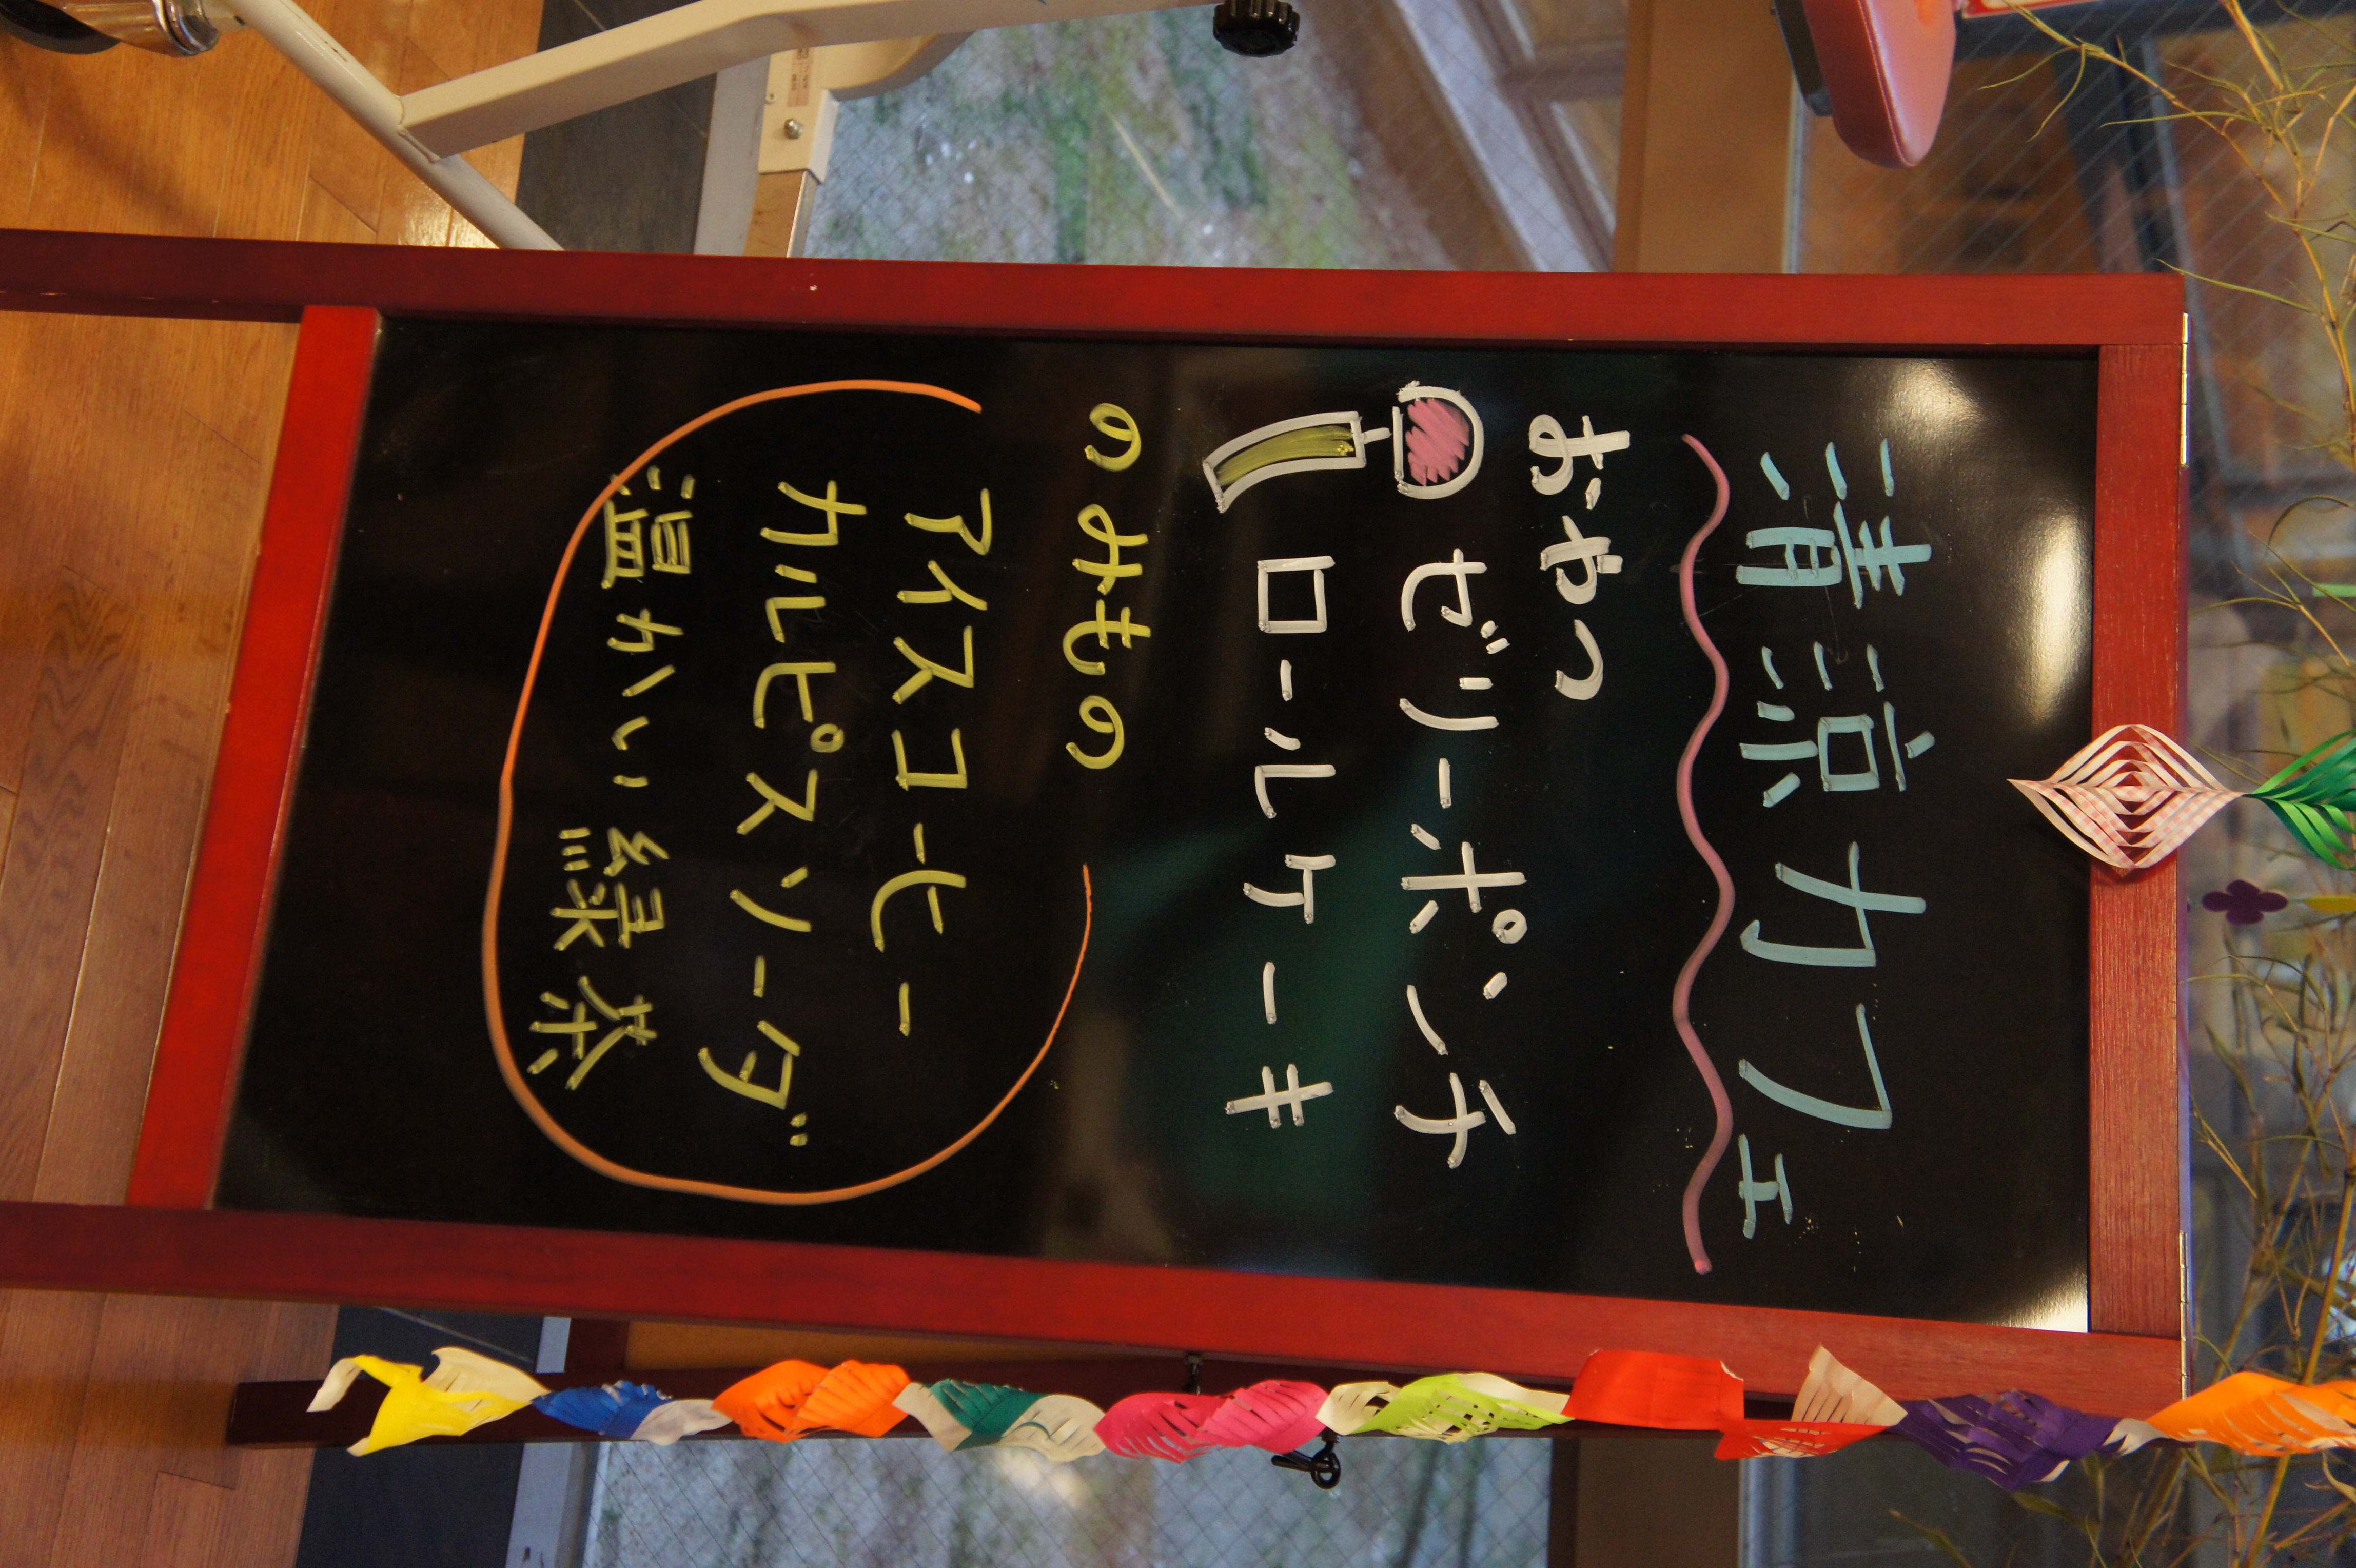 清涼カフェ
おやつ
ゼリーポンチ
ロールケーキ
のみもの
アイスコーヒー
カルピスソーダ
温かい緑茶